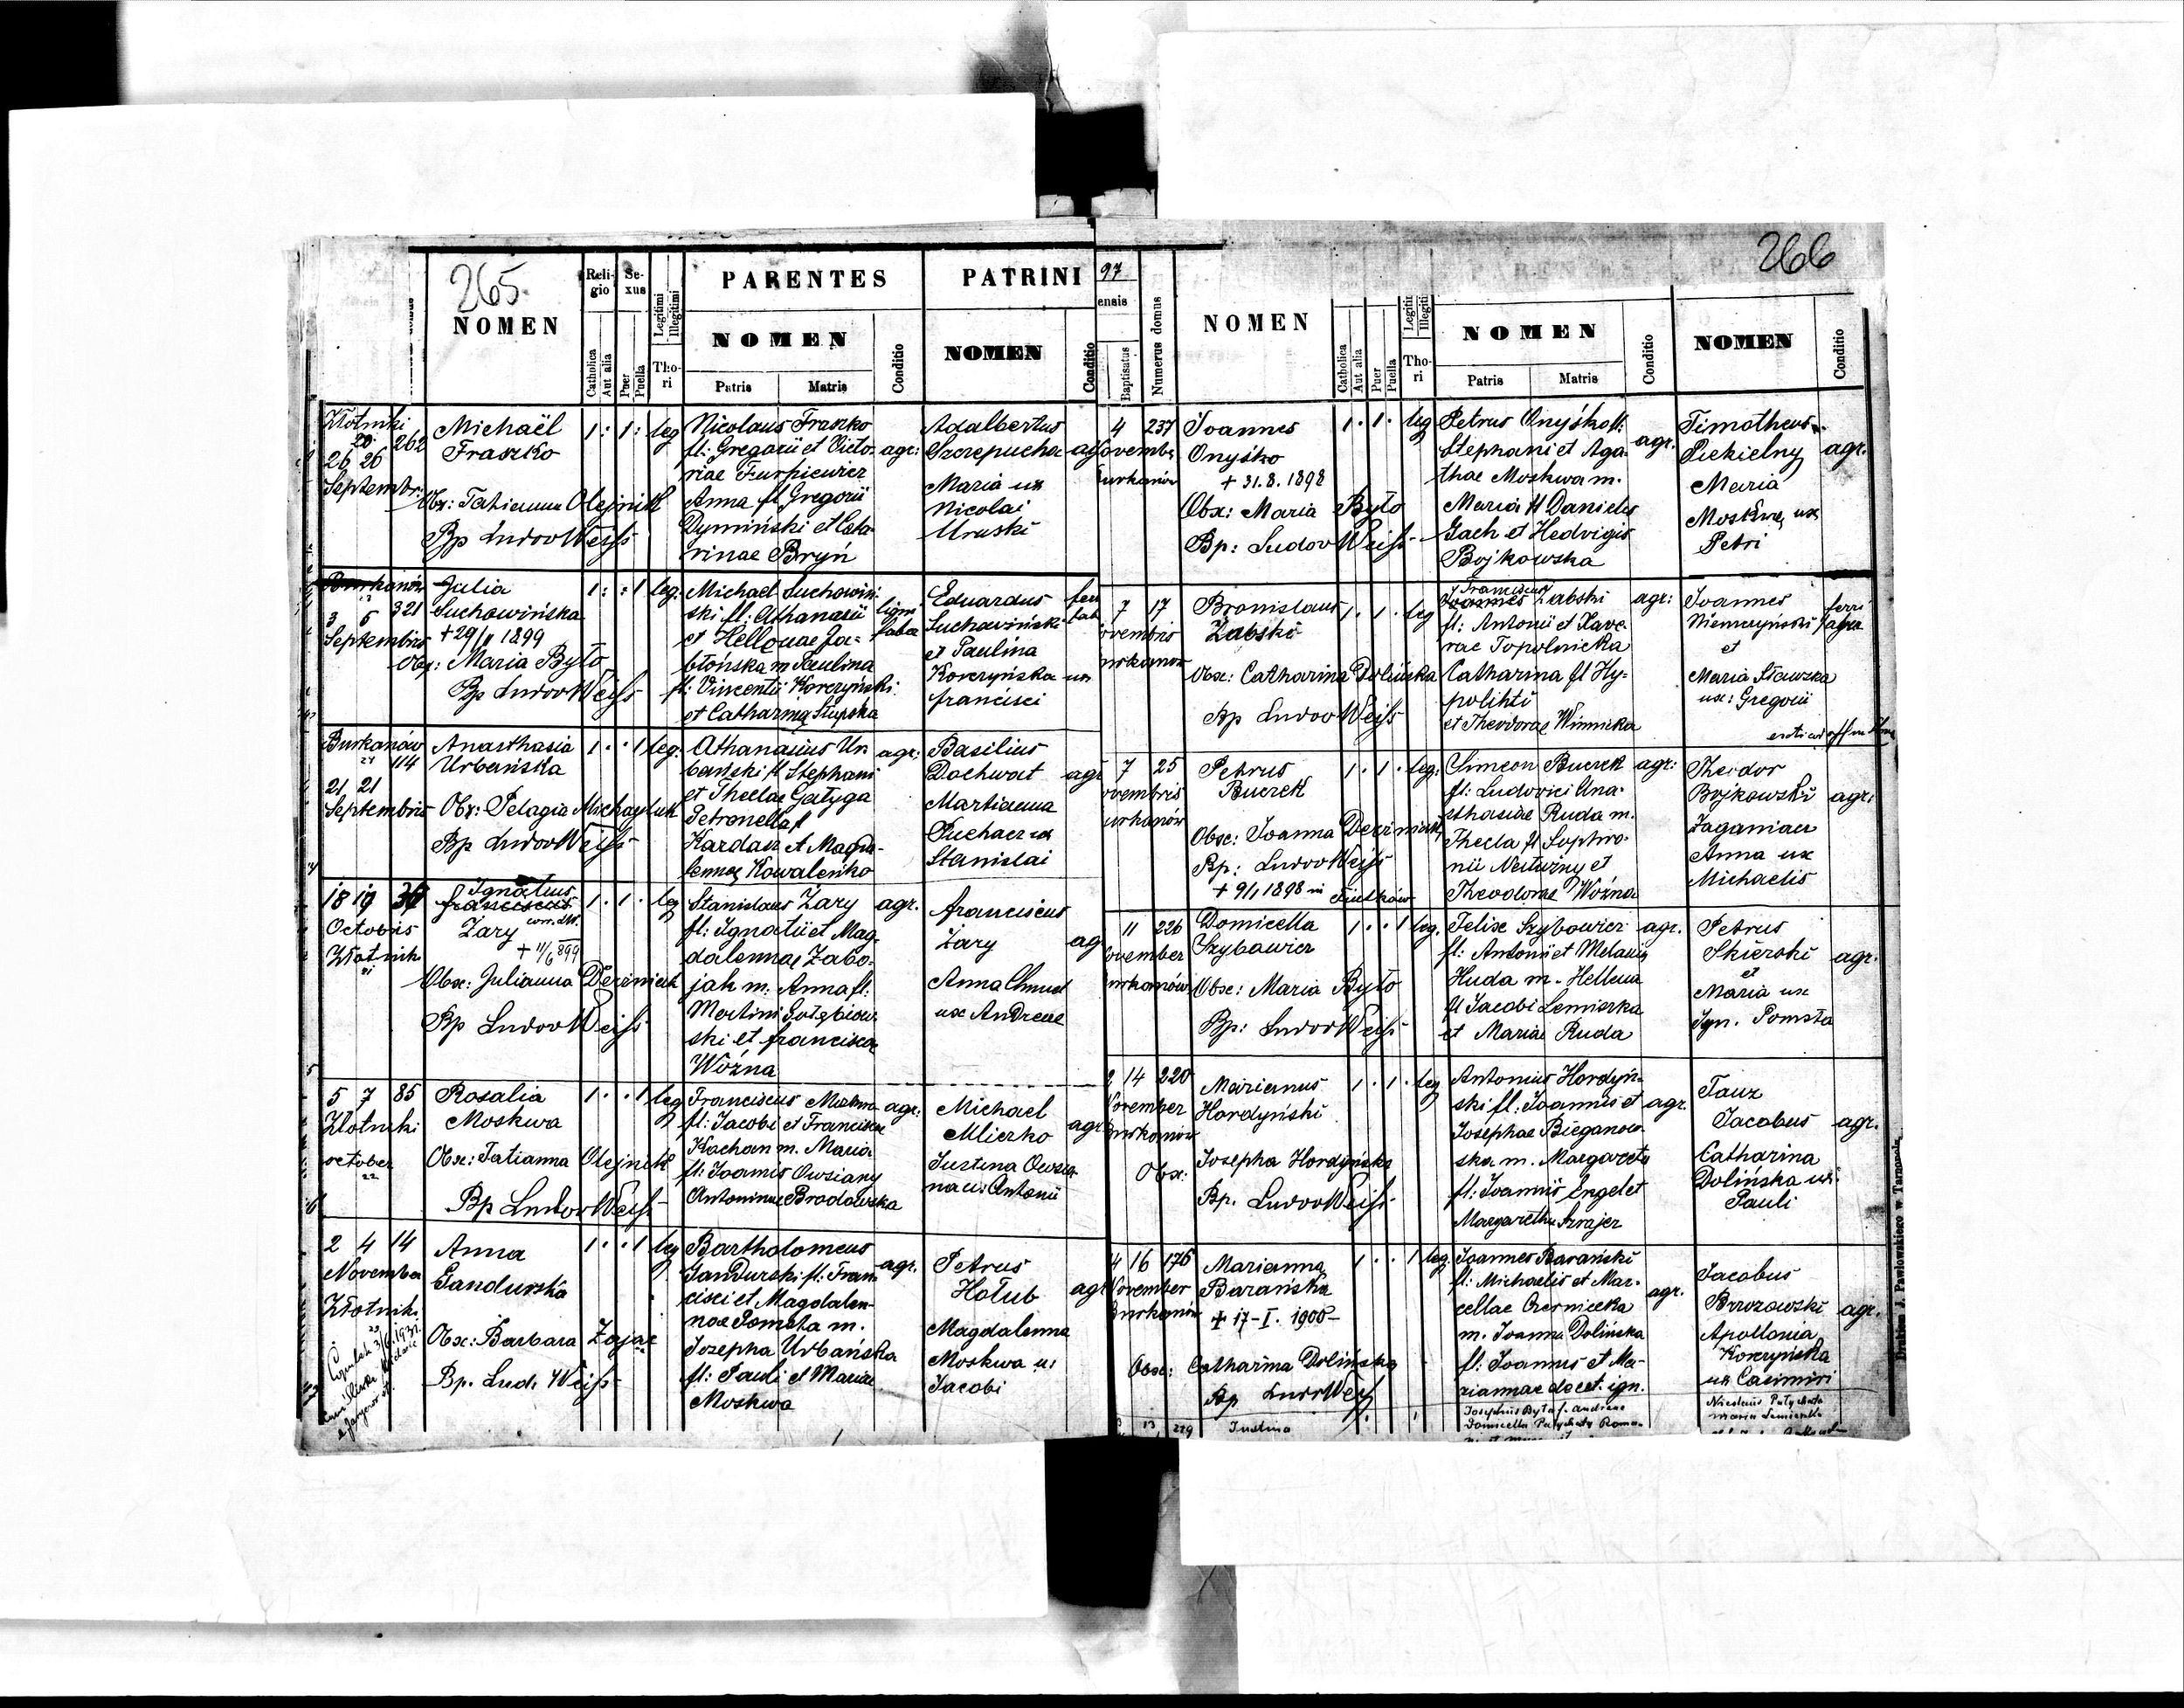 265
NOMEN
Religio
Sexus
Legitimi
Illegitimi
Catholica
Aut alia
Puer
Puella
Thori
PARENTES
NOMEN
Patris
Matris
Conditio
PATRINI
NOMEN
Conditio
Złotniki
26 26 262
Septembr:
Michaël
Fraszko
Obx: Tatianna Olejnik
Bp Ludov Weiss
1 : 1 : leg
Nicolaus Fraszko
fl: Gregorii et Victo-
riae Furpiewicz
Anna fl Gregorii
Dymiński et Cata-
rinae Bryń
agr:
Adalbertus
Szczepucha
Maria ux
Nicolai
Uruski
Burkanów
3 5 321
Septembris
Julia
Suchowińska
+ 29/11 1899
Obx: Maria Byto
Bp Ludov Weiss
1 : : 1 leg.
Michael Suchowiń-
ski fl: Athanasii
et Hellenae Ja-
błońska m Paulina
fl: Vincentii Korczyński
et Catharina Słupska
lign.
faber
Eduardus
Suchowiński
et Paulina
Korczyńska ux
Francisci
Burkanów
114
21 21
Septembris
Anasthasia
Urbańska
Obx: Pelagia Michayluk
Bp Ludov Weiss
1 · · 1 leg:
Athanasius Ur-
bański fl Stephani
et Theclae Gatyga
Petronella fl
Kardasz et Magda-
lennae Kowaleńko
agr:
Basilius
Dachwat
Martianna
Puchacz ux
Stanislai
agr
18 19 37
Octobris
Złotnik
Ignatius
franciscus
Zary
+ 11/6 899
Obx: Julianna Dereniuk
Bp Ludov Weiss
1 · 1 · leg
Stanislaus Zary
fl: Ignatii et Mag-
dalennae Zabo-
jak m: Anna fl:
Martini Gołębiow-
ski et francisca
Woźna
agr.
franciscus
Zary
Anna Chmiel
ux Andreae
5 7 85
Złotniki
october
Rosalia
Moskwa
Obx: Tatianna Olejnik
Bp Ludov Weiss
1 · · 1 leg
Franciscus Moskwa
fl: Jacobi et Franciscae
Kachan m. Maria
fl: Joannis Owsiany
Antoninae Brodowska
agr:
Michael
Mliczko
Justina Owsia-
na ux: Antonii
agr
2 4 14
November
Złotniki
Anna
Gandurska
Obx: Barbara Zając
Bp. Lud. Weiss
1 · · 1 leg
Bartholomeus
Gandurski fl: Fran-
cisci et Magdalen-
nae Pomsta m.
Josepha Urbańska
fl: Pauli et Mariae
Moskwa
agr.
Petrus
Hołub
Magdalenna
Moskwa ux
Jacobi
agr
266
97
ensis
Baptisatus
Numerus domus
NOMEN
Catholica
Aut alia
Puer
Puella
Legiti
Illegiti
Thori
PARENTES
NOMEN
Patris
Matris
Conditio
NOMEN
Conditio
4 237
Joannes
Onyśko
+ 31.8.1898
Obx: Maria Byto
Bp: Ludov Weiss
1 · 1 · leg
Petrus Onyśko fl:
Stephani et Aga-
thae Moskwa m.
Maria fl Danielis
Gach et Hedvigis
Bojkowska
agr.
Timotheus
Piekielny
Maria
Moskwa ux
Petri
agr.
7 17
Bronislaus
Zabski
Obx: Catharina Dolińska
Bp Ludov Weiss
1 · 1 · leg
Franciscus
Joannes Zabski
fl: Antonii et Xave-
rae Topolnicka
Catharina fl Hy-
polihti
et Theodorae Winnicka
agr:
Joannes
Niemczyński
et
Maria Sławska
ux: Gregorii
7 25
Petrus
Buczek
Obx: Joanna Dereniuk
Bp: Ludov Weiss
+ 9/1 1898 in
1 · 1 · leg:
Simeon Buczek
fl: Ludovici Ana-
sthasiae Ruda m.
Thecla fl Sophro-
nii Neuturzny et
Theodorae Woźna
agr:
Theodor
Bojkowski
Zaganiacz
Anna ux
Michaelis
agr:
11 226
Domicella
Szybowicz
Obx: Maria Byto
Bp: Ludov Weiss
1 · · 1 leg.
Felix Szybowicz
fl: Antonii et Melania
Huda m. Hellena
fl Jacobi Lemiszka
et Mariae Ruda
agr.
Petrus
Skierski
et
Maria ux
Ign. Pomsta
agr.
14 220
November
Marianus
Hordyński
Obx: Josepha Hordyńska
Bp. Ludov Weiss
1 · 1 · leg
Antonius Hordyń-
ski fl: Joannis et
Josephae Bieganow-
ska m. Margareta
fl: Joannis Engel et
Margaretha Szrajer
agr.
Tauz
Jacobus
Catharina
Dolińska ux.
Pauli
agr.
14 16 176
November
Burkanów
Marianna
Barańska
+ 17-I. 1900-
Obx: Catharina Dolińska
Bp Ludov Weiss
1 · · 1 leg.
Joannes Barański
fl: Michaelis et Mar-
cellae Czernicka
m. Joanna Dolińska
fl: Joannis et Ma-
riannae de cet. ign.
agr.
Jacobus
Brzozowski
Apollonia
Korczyńska
ux Casimiri
agr.
13 229
Justina
Josephus Byto f. Andreae
Domicella Patychata Roma-
Nicolaus Patychata
Maria Lemiszka
Drukiem J. Pawlowskiego w Tarnopolu